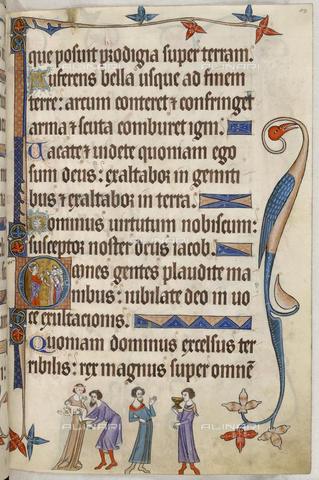 que posuit prodigia super terram.
Auferens bella usque ad finem
terre: arcum conteret ⁊ confringet
arma ⁊ scuta comburet igni.
Uacate ⁊ uidete quoniam ego
sum deus: exaltabor in gentti
bus ⁊ exaltabor in terra.
Dominus uirtutum nobiscum:
susceptor noster deus iacob.
Omnes gentes plaudite ma
nibus: iubilate deo in uo
ce exultacionis.
Quoniam dominus excelsus ter
ribilis: rex magnus super omnē
ALINARI
ALINARI
ALINARI
ALINARI